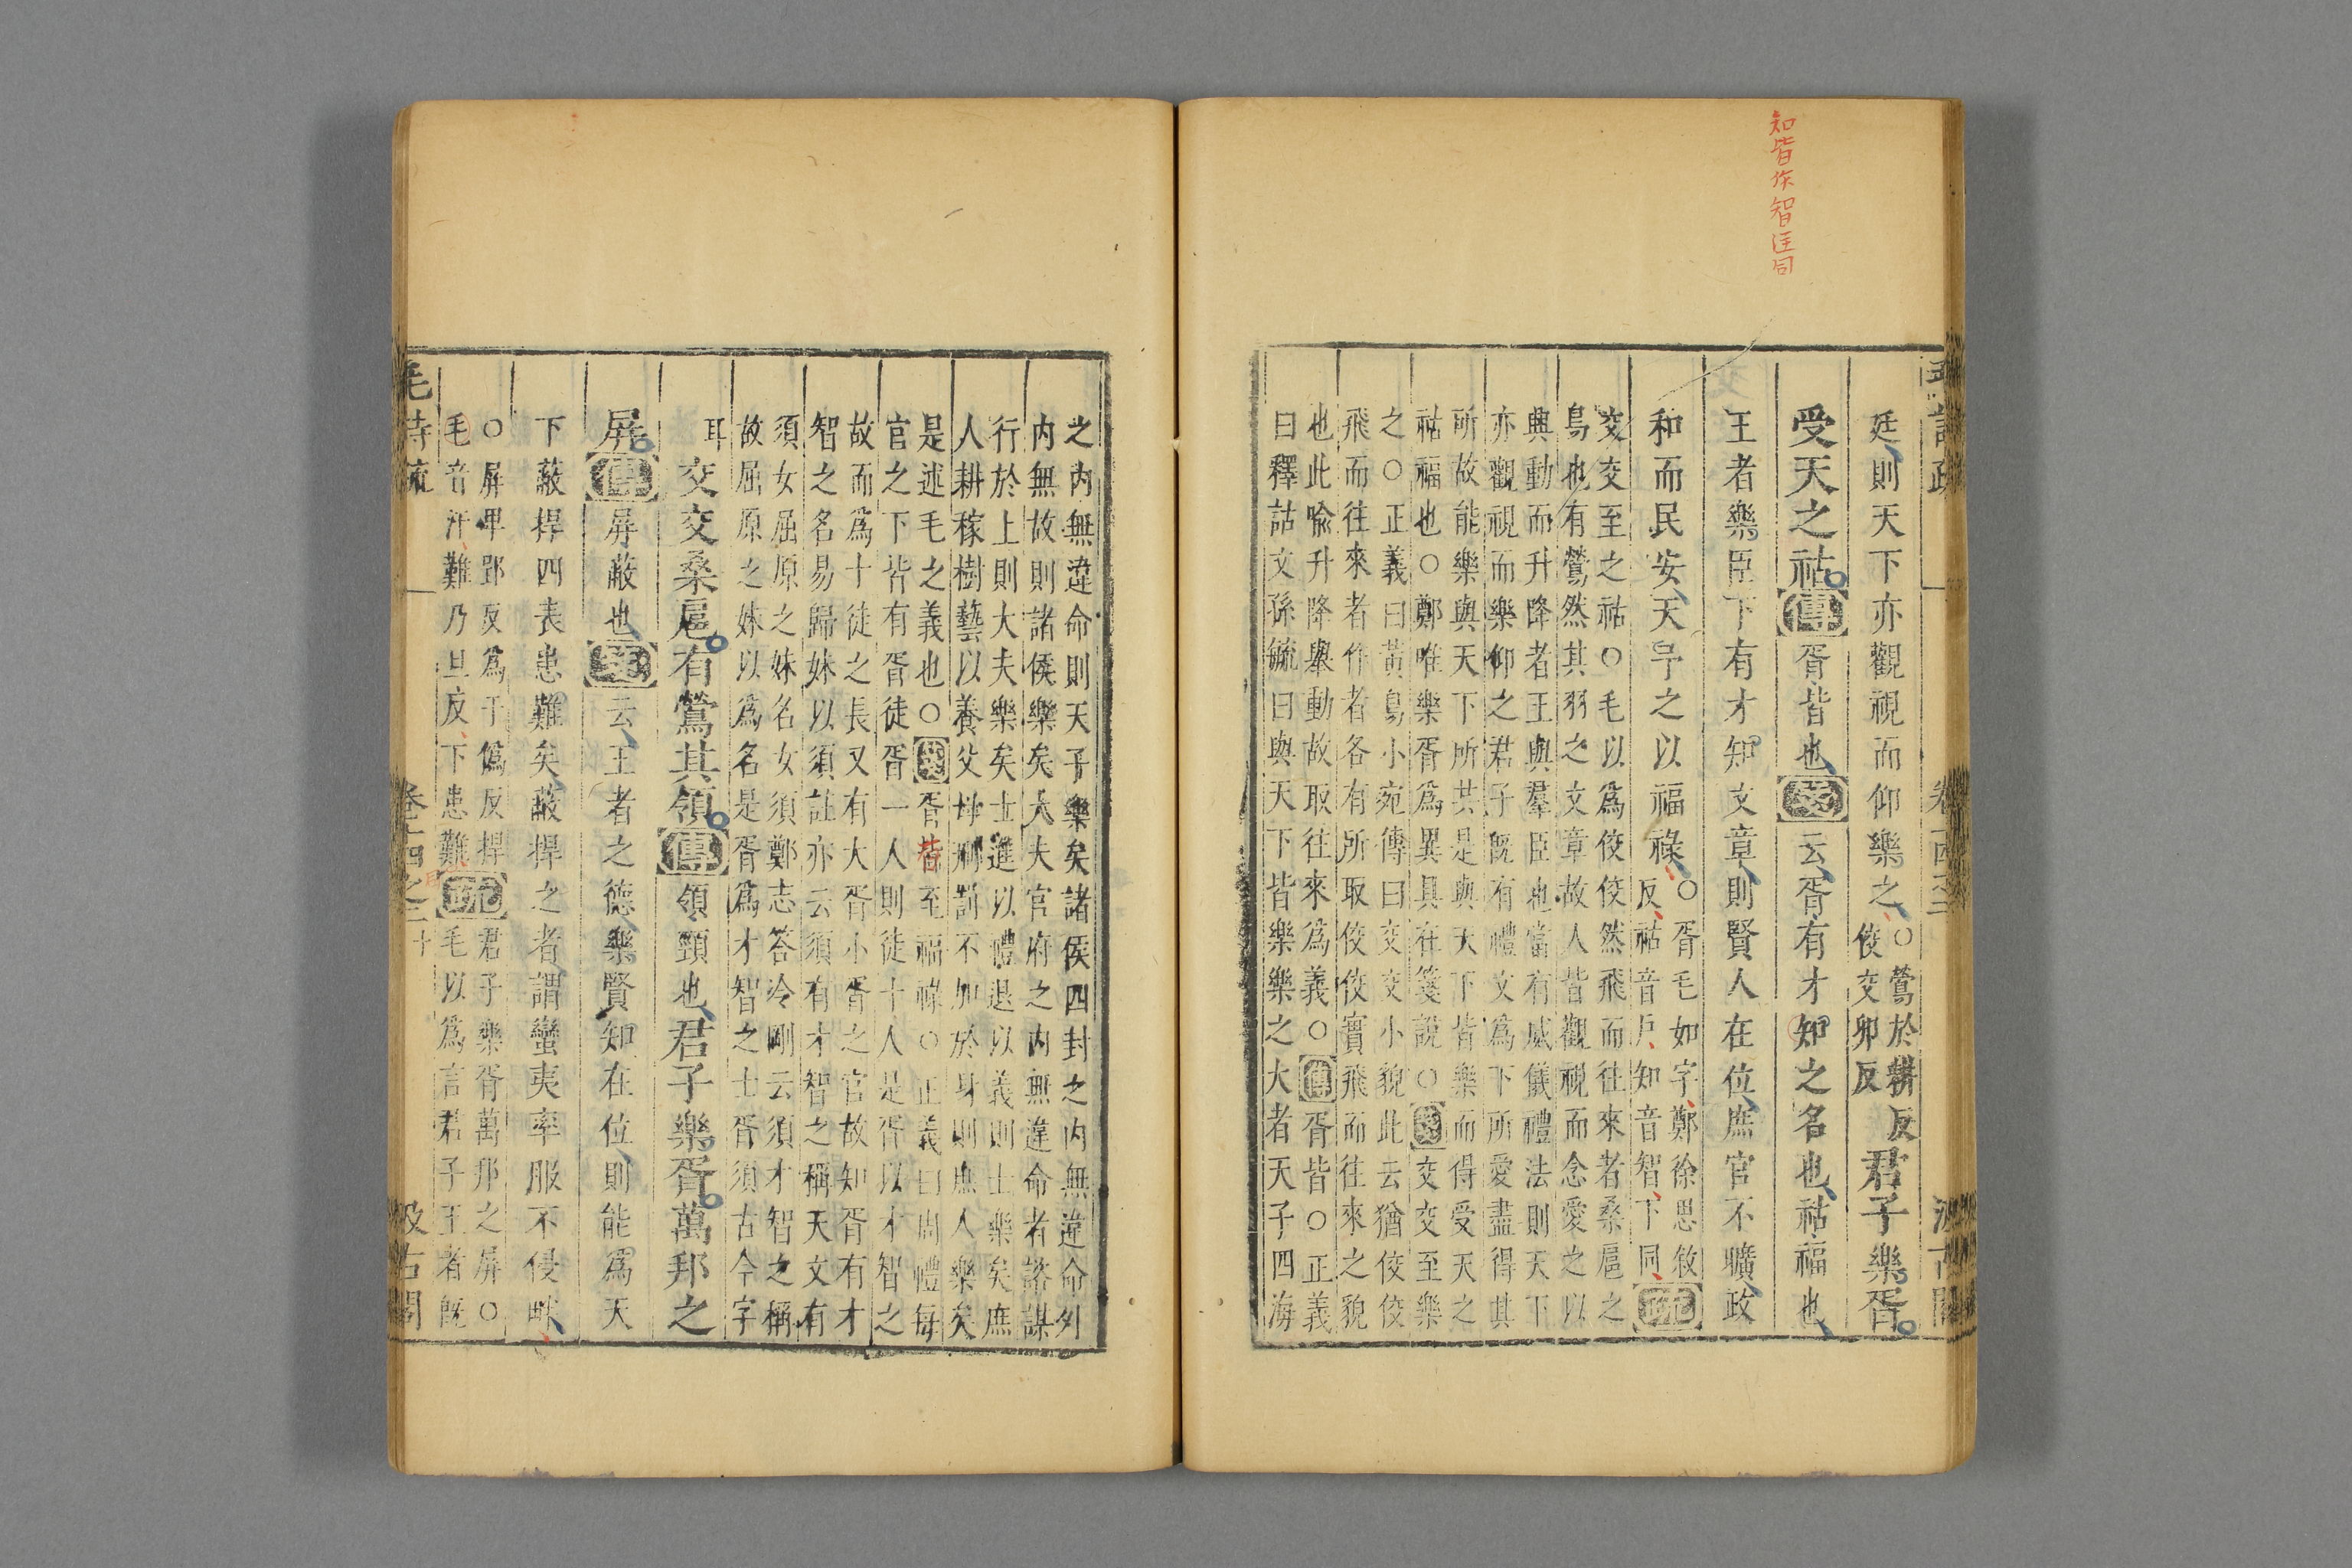 知皆作智匡同
毛詩疏
卷十四之二
汲古閣
廷則天下亦觀視而仰樂之○鶯於耕反
佼交卯反
君子樂胥
受天之祜傳胥皆也箋云胥有才知之名也祜福也
王者樂臣下有才知文章則賢人在位庶官不曠政
和而民安天予之以福祿○胥毛如字鄭徐思敘
反祜音户知音智下同疏
交交至之祜○毛以為佼佼然飛而往來者桑扈之
鳥也有鶯然其羽之文章故人皆觀視而念愛之以
興動而升降者王與羣臣也當有威儀禮法則天下
亦觀視而樂仰之君子既有禮文為下所愛盡得其
所故能樂與天下所共是與天下皆樂而得受天之
祜福也○鄭唯樂胥為異具在箋說○箋交交至樂
之○正義曰黃鳥小宛傳曰交交小貌此云猶佼佼
飛而往來者作者各有所取佼佼實飛而往來之貌
也此喻升降舉動故取往來為義○傳胥皆○正義
曰釋詁文孫毓曰與天下皆樂樂之大者天子四海
之内無違命則天子樂矣諸侯四封之内無違命外
内無故則諸侯樂矣大夫官府之内無違命者諮謀
行於上則大夫樂矣士進以禮退以義則士樂矣庶
人耕稼樹藝以養父母刑罰不加於身則庶人樂矣
是述毛之義也○箋胥皆至福祿○正義曰周禮每
官之下皆有胥徒胥一人則徒十人是胥以才智之
故而為十徒之長又有大胥小胥之官故知胥有才
智之名易歸妹以須註亦云須有才智之稱天文有
須女屈原之妹名女須鄭志答冷剛云須才智之稱
故屈原之妹以為名是胥為才智之士胥須古今字
耳
交交桑扈有鶯其領傳領頸也君子樂胥萬邦之
屏傳屏蔽也箋云王者之德樂賢知在位則能為天
下蔽捍四表患難矣蔽捍之者謂蠻夷率服不侵畔
○屏卑郢反為于僞反捍
毛音汗難乃旦反下患難疏
君子樂胥萬邦之屏○
毛以為言君子王者既
毛詩疏
卷十四之二
十
汲古閣